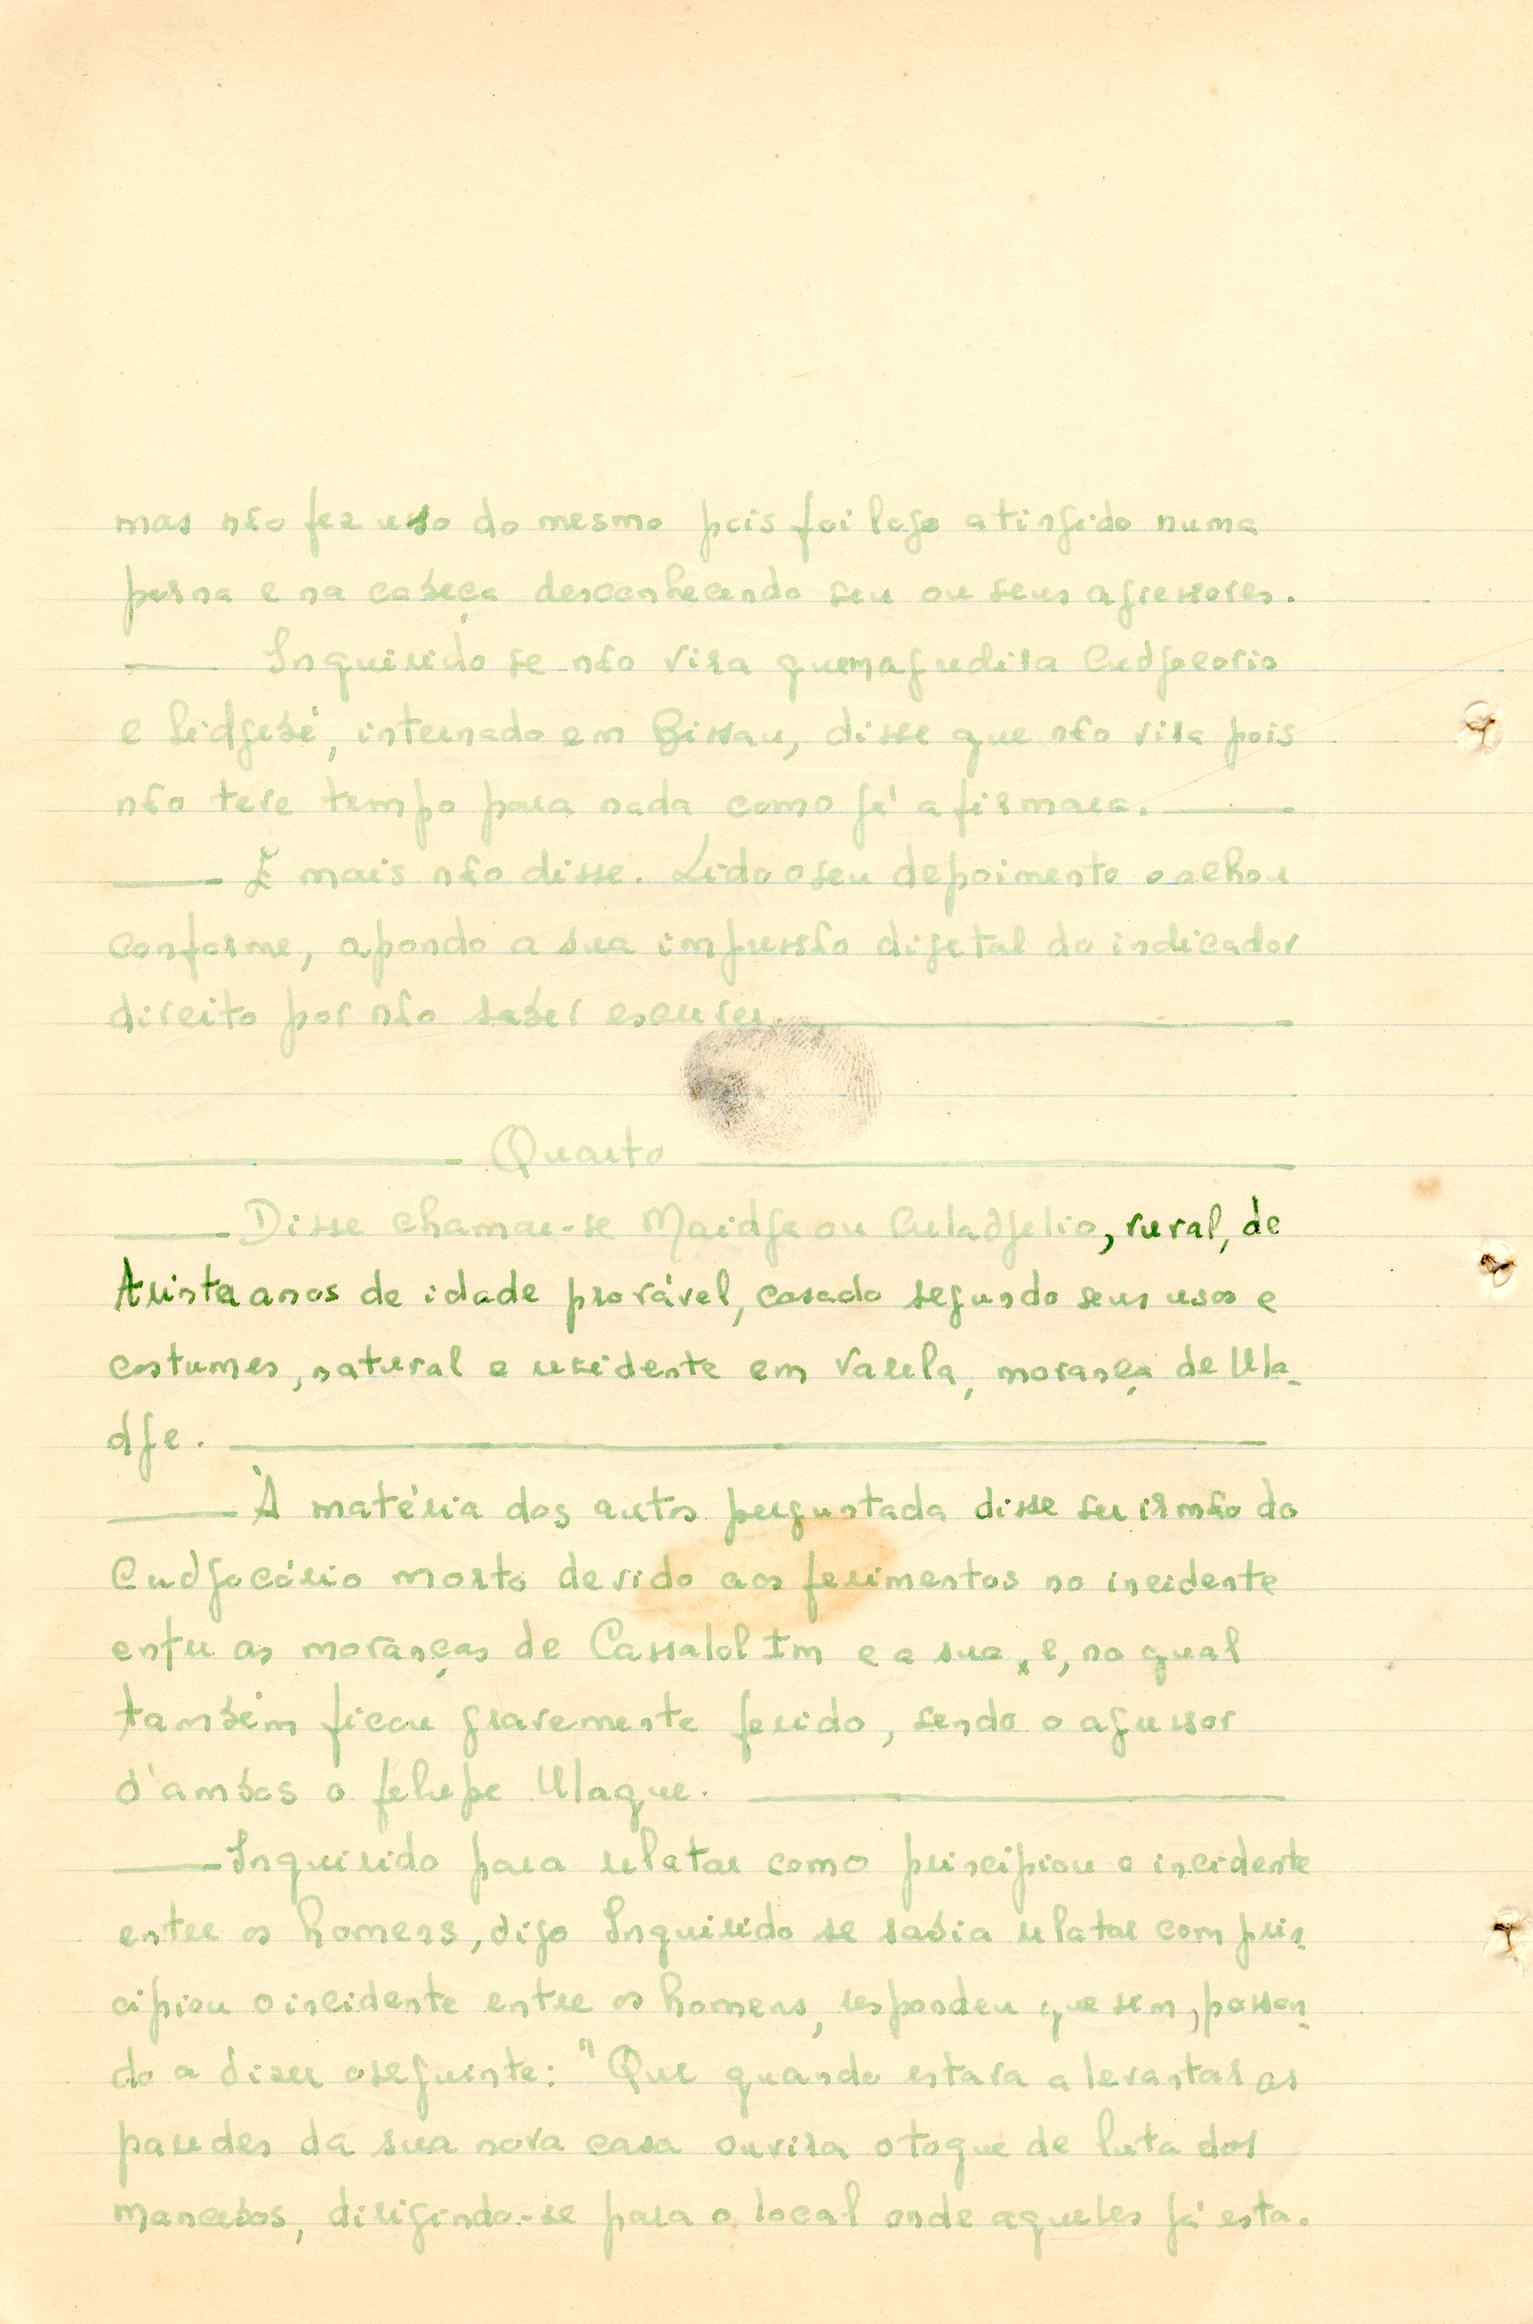 mas não fez uso do mesmo pois foi logo atingido numa
perna e na cabeça desconhecendo seu ou seus agressores.
—— Inquirido se não vira quem agredira Cudjocorio
e Lidjebé, internado em Bissau, disse que não vira pois
não teve tempo para nada como já afirmara. ——
—— E mais não disse. Lido o seu depoimento o achou
conforme, apondo a sua impressão digital do indicador
direito por não saber escrever. ——
—— Quarto ——
—— Disse chamar-se Maidje ou Culadjelio, rural, de
trinta anos de idade provável, casado segundo seus usos e
costumes, natural e residente em Varela, morança de Ula-
dje. ——
—— À matéria dos autos perguntada disse ser irmão do
Cudjocório morto devido aos ferimentos no incidente
entre as moranças de Cassalol Im e a sua, e, no qual
também ficou gravemente ferido, sendo o agressor
d'ambos o felupe Ulaque. ——
—— Inquirido para relatar como principiou o incidente
entre os homens, digo Inquirido se sabia relatar com prin-
cipiou o incidente entre os homens, respondeu que sim, passan-
do a dizer o seguinte: "Que quando estava a levantar as
paredes da sua nova casa ouvira o toque de luta dos
mancebos, dirigindo-se para o local onde aqueles já esta-